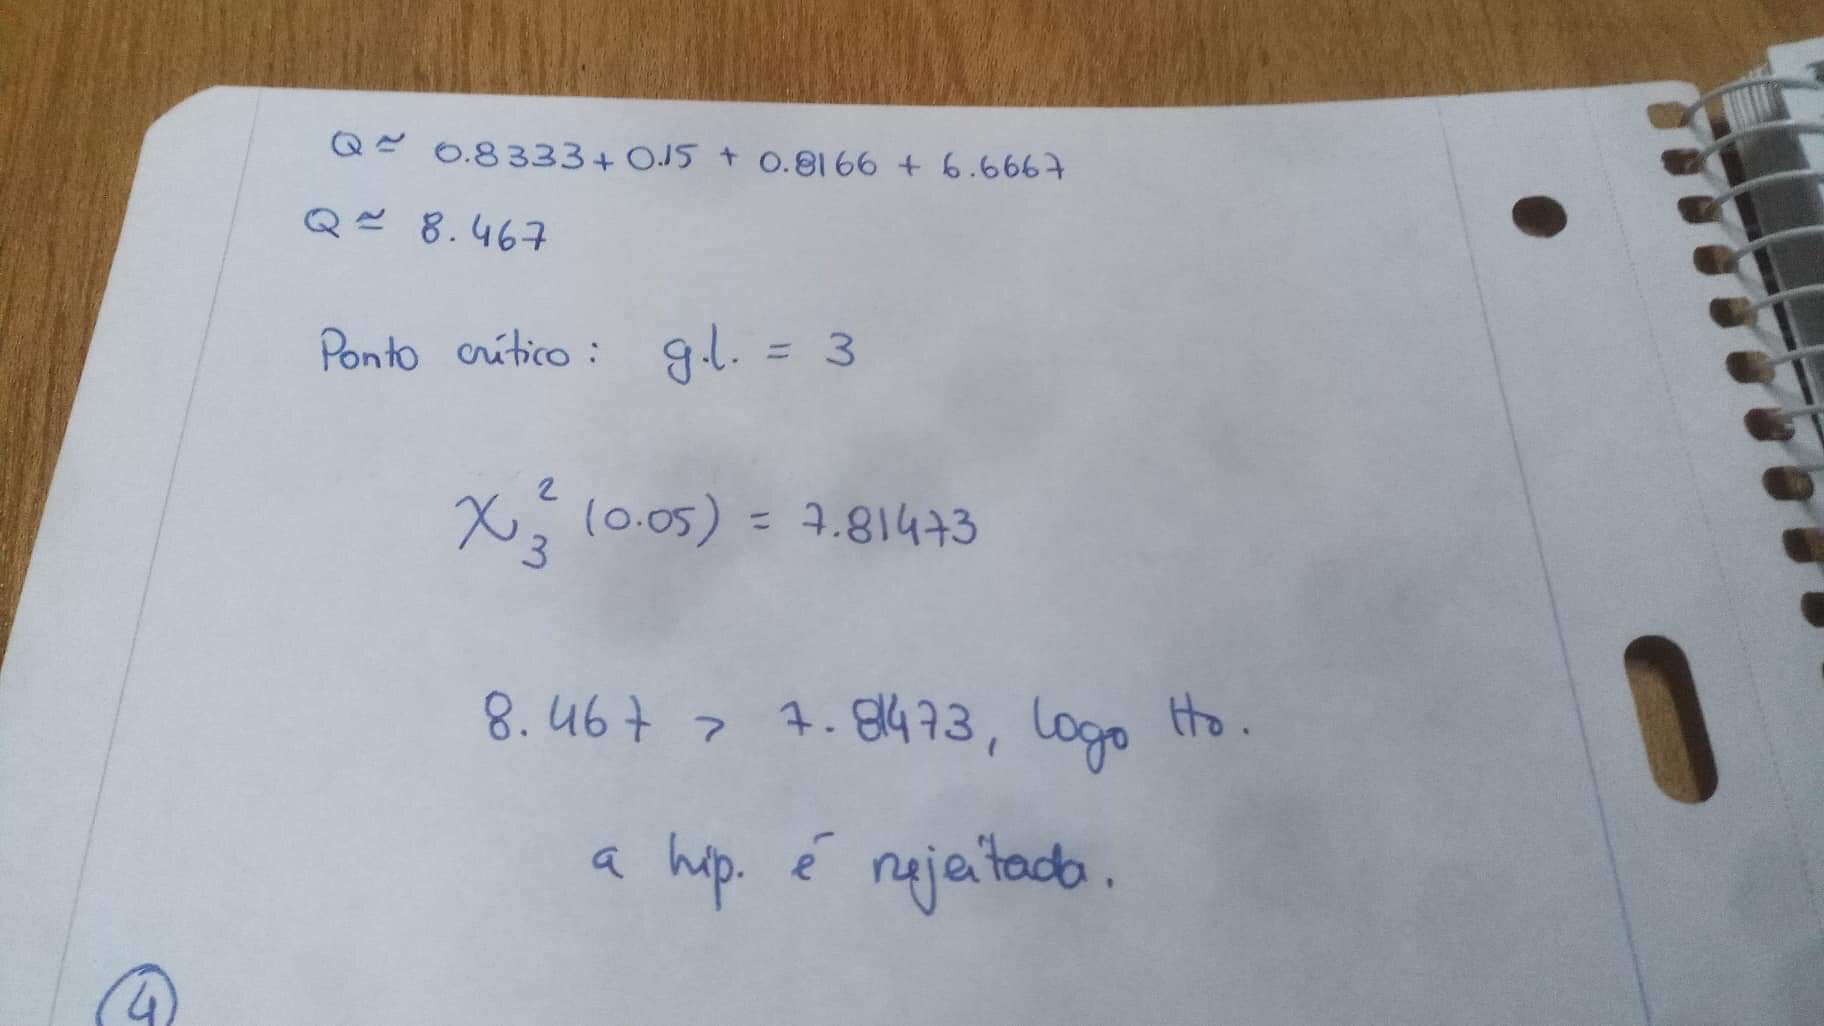 Q ≃ 0.8333 + 0.15 + 0.8166 + 6.6667
Q ≃ 8.467
Ponto crítico: g.l. = 3
χ²₃ (0.05) = 7.81473
8.467 > 7.81473, logo H0.
a hip. é rejeitada.
4